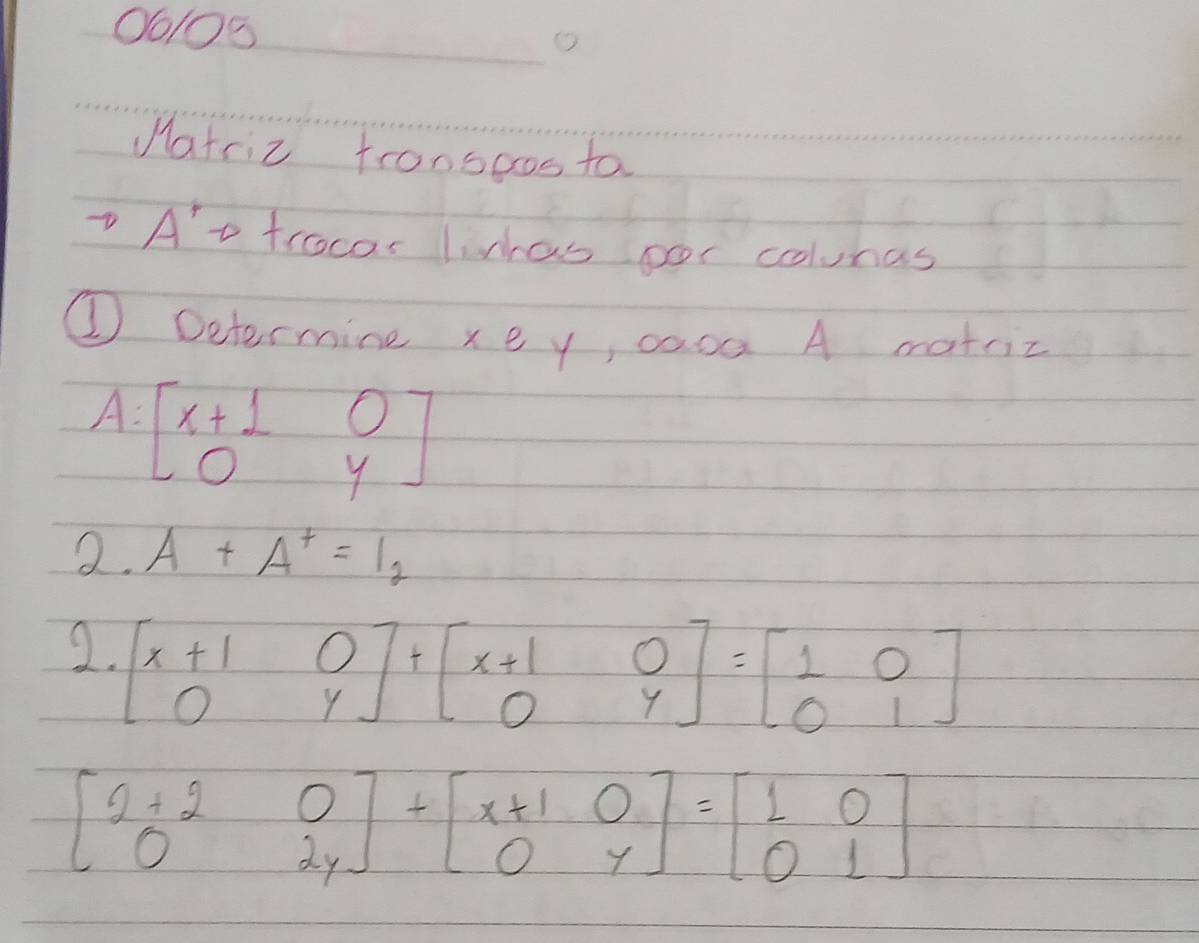 06/05
Matriz transposta
→ A^t → trocar linhas por colunas
① Determine x e y, para A matriz
A: [x+1 0]
[0 y]
2. A + A^t = I₂
2. [x+1 0] + [x+1 0] = [1 0]
[0 y] [0 y] [0 1]
[2+2 0] + [x+1 0] = [1 0]
[0 2y] [0 y] [0 1]